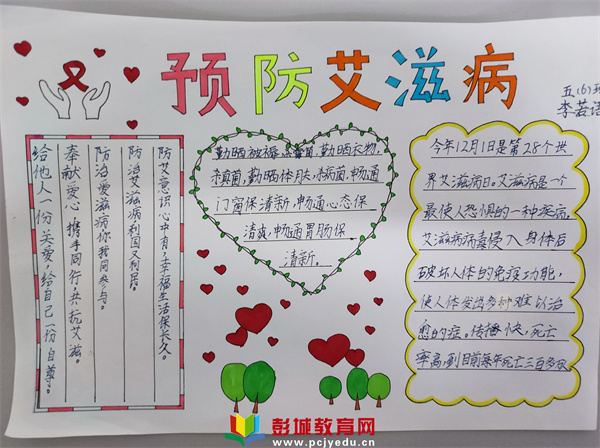 预防艾滋病
五(6)班
李若语
防艾意识心中有,幸福生活保长久。
防治艾滋病利国又利民。
防治爱滋病你我同参与。
奉献爱心,携手同行,共抗艾滋。
给他人一份关爱,给自己一份自尊。
勤晒被褥杀霉菌,勤晒衣物,
杀真菌,勤晒体肤,杀病菌,畅通
门窗保清新,畅通心态保
清爽,畅通胃肠保
清新。
今年12月1日是第28个世
界艾滋病日,艾滋病是一个
最使人恐惧的一种疾病,
艾滋病病毒侵入身体后
破坏人体的免疫功能,
使人体发出多种难以治
愈的症。传播快,死亡
率高,到目前每年死亡三百多万
彭城教育网
www.pcjyedu.cn